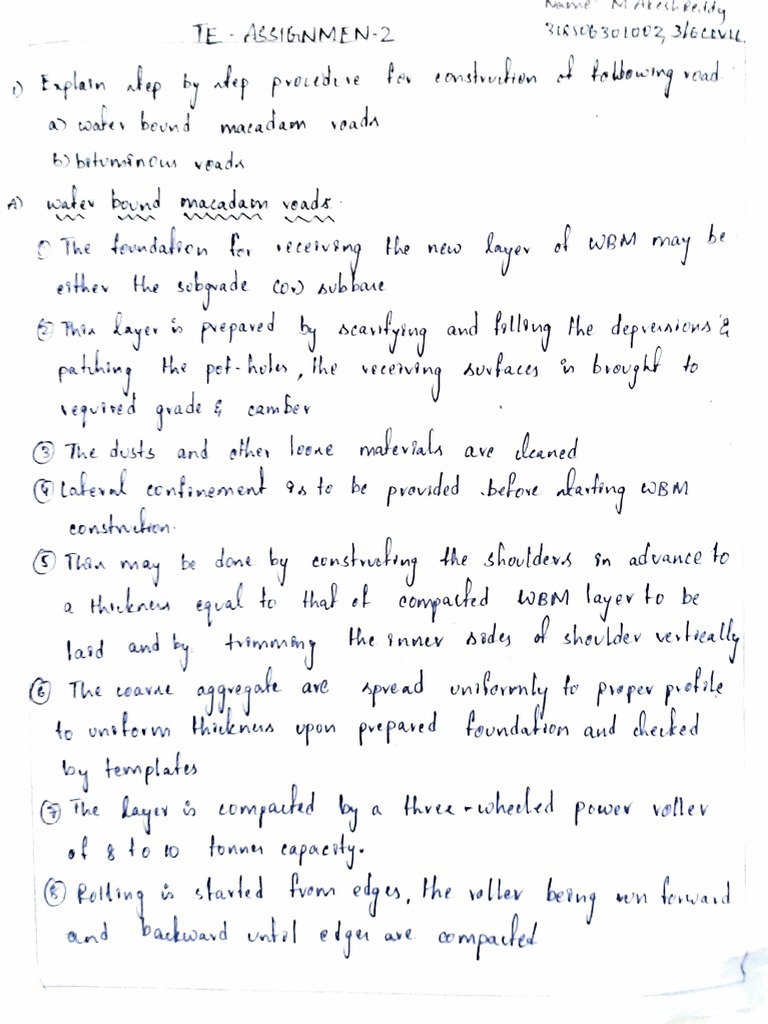 Name: M. Akesh Reddy
TE - ASSIGNMEN-2
3/6 CIVIL
1) Explain step by step procedure for construction of following road.
a) water bound macadam roads
b) bituminous roads
A) water bound macadam roads.
① The foundation for receiving the new layer of WBM may be
either the subgrade (or) subbase
② This layer is prepared by scarifying and filling the depressions &
patching the pot-holes, the receiving surfaces is brought to
required grade & camber
③ The dusts and other loose materials are cleaned
④ Lateral confinement is to be provided before starting WBM
construction.
⑤ This may be done by constructing the shoulders in advance to
a thickness equal to that of compacted WBM layer to be
laid and by trimming the inner sides of shoulder vertically
⑥ The coarse aggregate are spread uniformly to proper profile
to uniform thickness upon prepared foundation and checked
by templates
⑦ The layer is compacted by a three-wheeled power roller
of 8 to 10 tonnes capacity.
⑧ Rolling is started from edges, the roller being run forward
and backward until edges are compacted